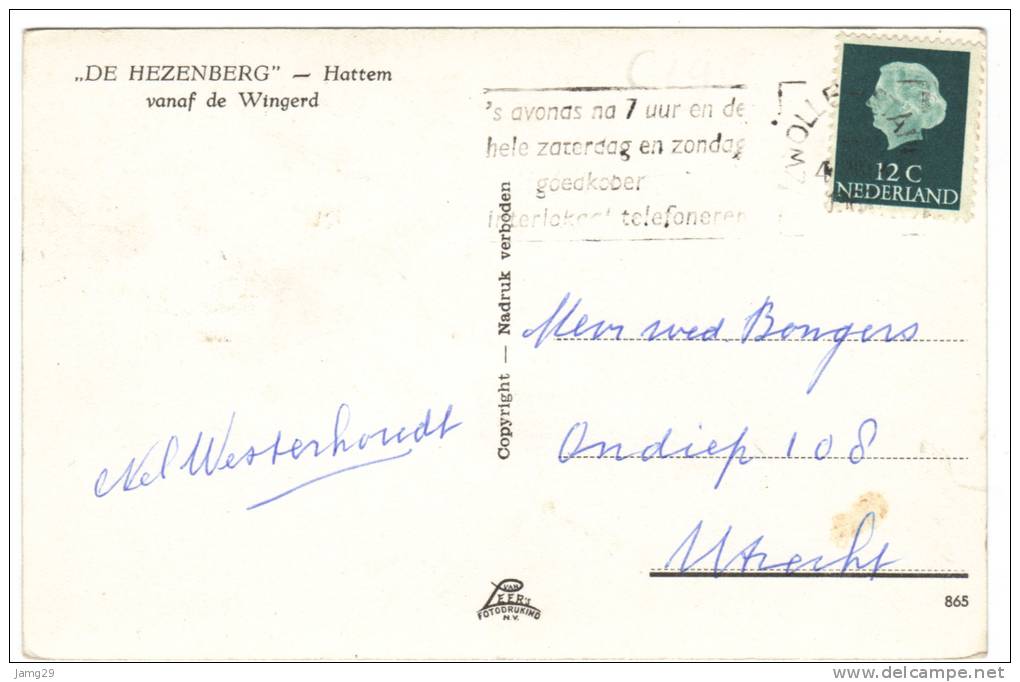 „DE HEZENBERG” — Hattem
vanaf de Wingerd
's avonds na 7 uur en de
hele zaterdag en zondag
goedkoper
interlokaal telefoneren
ZWOLLE
4
12 C
NEDERLAND
Copyright — Nadruk verboden
Mevr wed. Bongers
Ondiep 108
Utrecht
Nel Westerhoudt
VAN
LEER'S
FOTODRUKIND
N.V.
865
jamg29
www.delcampe.net